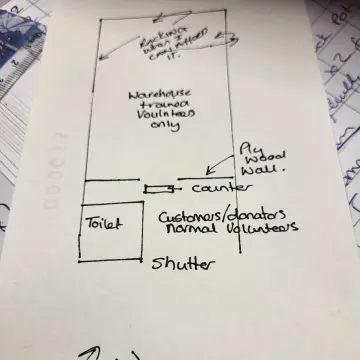 RACKING
WHEN I
CAN AFFORD
IT.
Warehouse
trained
Voulnteers
only
Ply
wood
Wall.
counter
Toilet
Customers/donators
normal Volunteers
Shutter